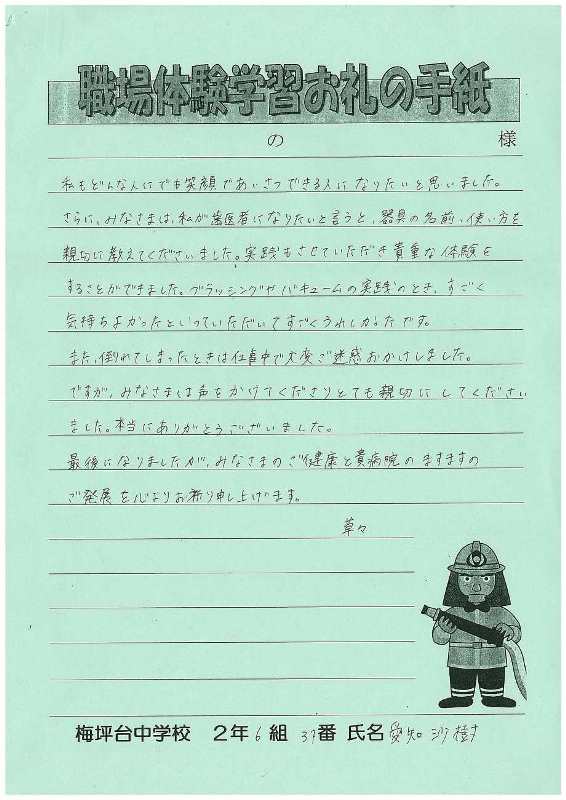 職場体験学習お礼の手紙
の 様
私もどんな人にでも笑顔であいさつできる人になりたいと思いました。
さらに、みなさまは、私が歯医者になりたいと言うと、器具の名前、使い方を
親切に教えてくださいました。実践もさせていただき貴重な体験を
することができました。ブラッシングやバキュームの実践のとき、すごく
気持ちよかったといっていただいてすごくうれしかったです。
また、倒れてしまったときは仕事中で大変ご迷惑おかけしました。
ですが、みなさまは声をかけてくださりとても親切にしてください
ました。本当にありがとうございました。
最後になりましたが、みなさまのご健康と貴病院のますますの
ご発展を心よりお祈り申し上げます。
草々
梅坪台中学校 2年6組 37番 氏名 愛知 沙樹